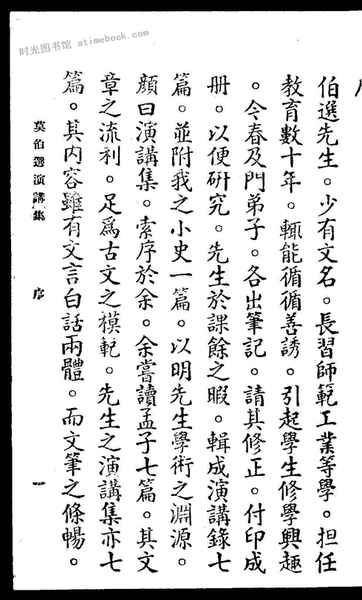 时光图书馆 atimebook.com
伯選先生。少有文名。長習師範工業等學。担任
教育數十年。輒能循循善誘。引起學生修學興趣
。今春及門弟子。各出筆記。請其修正。付印成
册。以便研究。先生於課餘之暇。輯成演講錄七
篇。並附我之小史一篇。以明先生學術之淵源。
顏曰演講集。索序於余。余嘗讀孟子七篇。其文
章之流利。足爲古文之模範。先生之演講集亦七
篇。其内容雖有文言白話兩體。而文筆之條暢。
莫伯選演講集 序 一